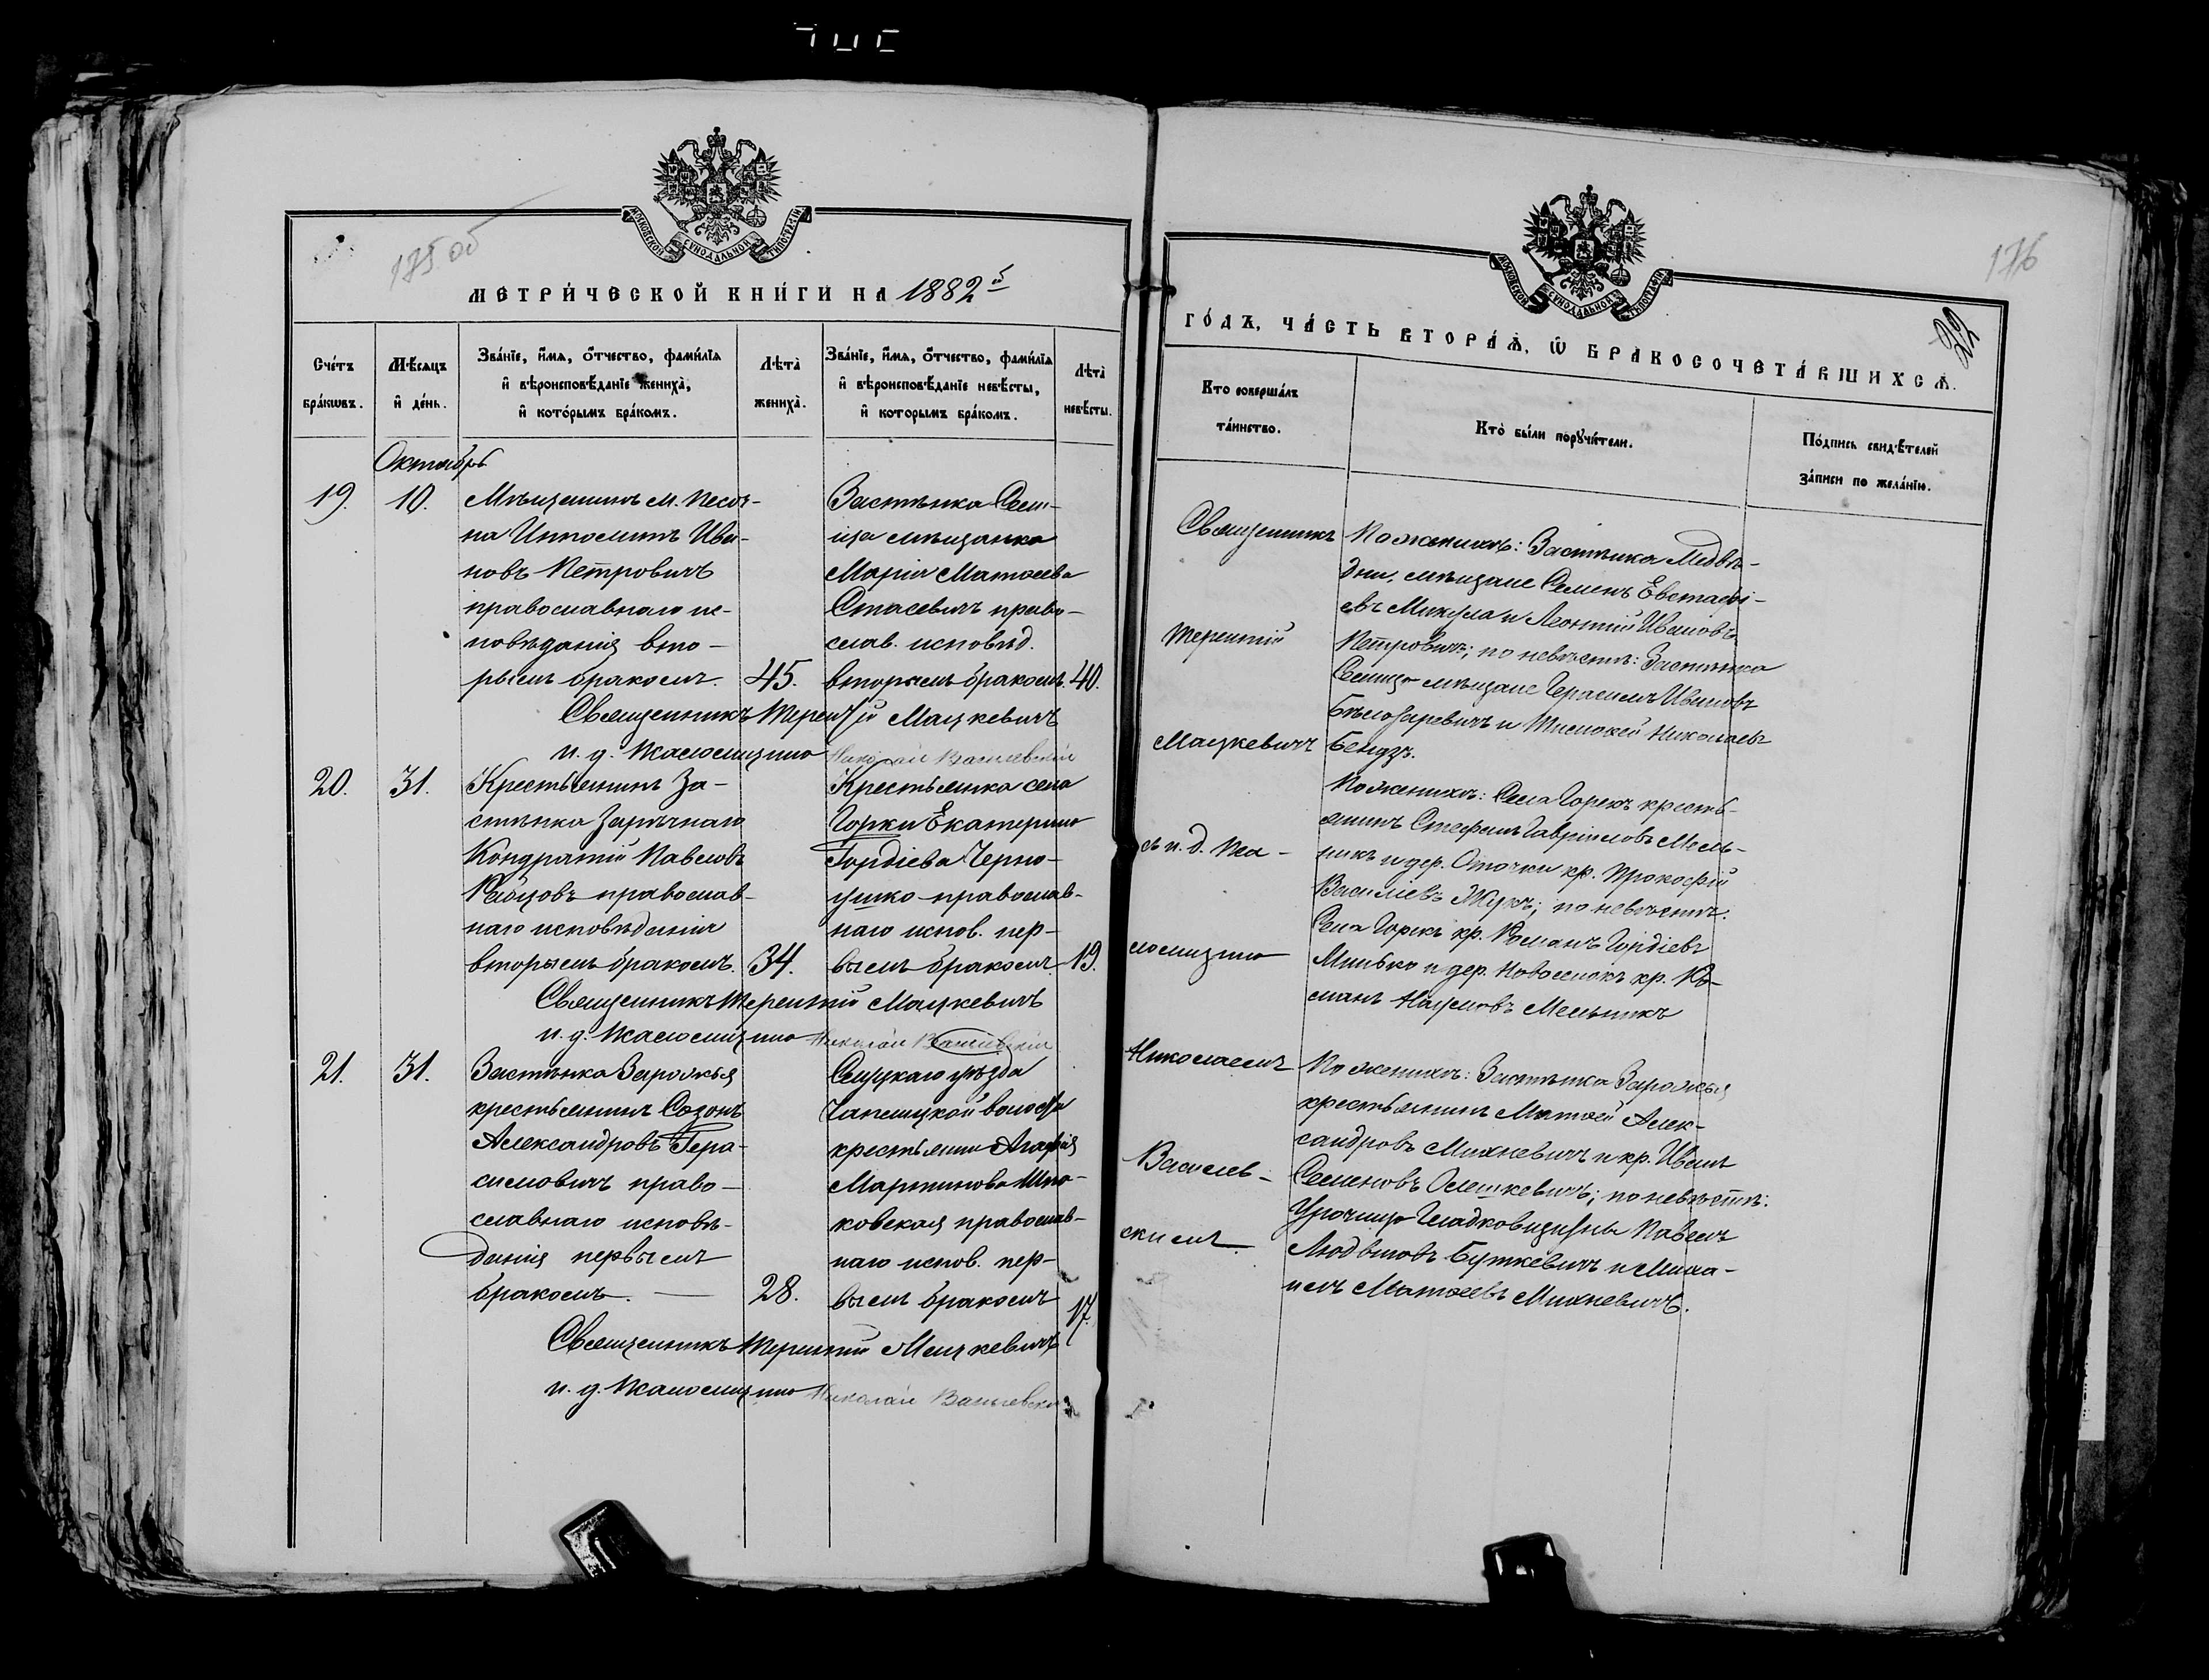 175 об
МОСКОВСКОЙ СѴНОДАЛЬНОЙ ТИПОГРАФІИ
МЕТРИЧЕСКОЙ КНИГИ НА 1882й
Счетъ браковъ.
Мѣсяцъ и день.
Званіе, имя, отчество, фамилія и вѣроисповѣданіе жениха, и которымъ бракомъ.
Лѣта жениха.
Званіе, имя, отчество, фамилія и вѣроисповѣданіе невѣсты, и которымъ бракомъ.
Лѣта невѣсты.
Октябрь
19. 10.
Мѣщанинъ м. Песоч-
на Ипполитъ Ива-
новъ Петровичъ
православнаго ис-
повѣданія вто-
рымъ бракомъ. 45.
Застѣнка Сели-
ща мѣщанка
Марія Матѳеева
Стасевичъ право-
слав. исповѣд.
вторымъ бракомъ. 40.
Священникъ Терентій Мацкевичъ
и. д. Псаломщика Николай Василевскій
20. 31.
Крестьянинъ За-
стѣнка Зарѣчнаго
Кондратій Павловъ
Рабцовъ православ-
наго исповѣданія
вторымъ бракомъ. 34.
Крестьянка села
Горки Екатерина
Гордіева Черно-
ушко православ-
наго испов. пер-
вымъ бракомъ 19.
Священникъ Терентій Мацкевичъ
и. д. Псаломщика Николай Василевскій
21. 31.
Застѣнка
крестьянинъ Созонъ
Александровъ Гера-
симовичъ право-
славнаго исповѣ-
данія первымъ
бракомъ. — 28.
Слуцкаго уѣзда
волости
крестьянка Агафія
Мартинова Шпа-
ковская православ-
наго испов. пер-
вымъ бракомъ 17.
Священникъ Терентій Мацкевичъ
и. д. Псаломщика Николай Василевскій
176
22
МОСКОВСКОЙ СѴНОДАЛЬНОЙ ТИПОГРАФІИ
ГОДЪ, ЧАСТЬ ВТОРАЯ, Ѡ БРАКОСОЧЕТАВШИХСЯ.
Кто совершалъ таинство.
Кто были поручители.
Подпись свидѣтелей записи по желанію.
Священникъ
Терентій
Мацкевичъ
съ и. д. Пса-
ломщика
Николаемъ
Василев-
скимъ.
По женихѣ: Застѣнка Медвѣ-
дни, мѣщане Семенъ Евстафі-
евъ Микула и Леонтій Ивановъ
Петровичъ; по невѣстѣ: Застѣнка
Селища мѣщане Герасимъ Ивановъ
Бѣлозаревичъ и Тимоѳей Николаевъ
Бендзъ.
По женихѣ: Села Горокъ кресть-
янинъ Стефанъ Гавріиловъ Мель-
никъ и дер. Оточки кр. Прокофій
Василіевъ Жукъ; по невѣстѣ:
Села Горкъ кр. Романъ Гордіевъ
Минько и дер. Новоселокъ кр. Ро-
манъ Наумовъ Мельникъ
По женихѣ: Застѣнка
крестьянинъ Матѳей Алек-
сандровъ Михневичъ и кр. Иванъ
Семеновъ Олешкевичъ; по невѣстѣ:
Урочища Гладковщизны Павелъ
Людвиговъ Буткевичъ и Миха-
илъ Матѳеевъ Михневичъ.